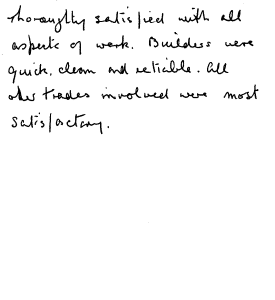 Thoroughly satisfied with all
aspects of work. Builders were
quick, clean and reliable. All
other trades involved were most
satisfactory.